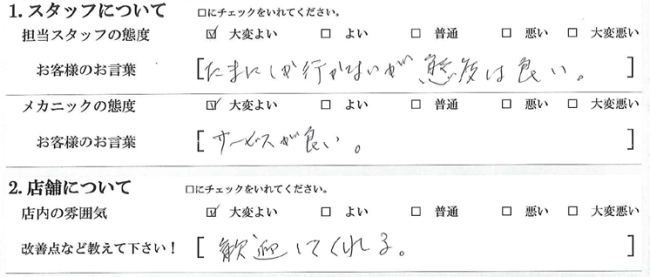 1. スタッフについて □にチェックをいれてください。
担当スタッフの態度 ☑ 大変よい □ よい □ 普通 □ 悪い □ 大変悪い
お客様のお言葉 [たまにしか行かないが 態度は良い。]
メカニックの態度 ☑ 大変よい □ よい □ 普通 □ 悪い □ 大変悪い
お客様のお言葉 [サービスが良い。]
2. 店舗について □にチェックをいれてください。
店内の雰囲気 ☑ 大変よい □ よい □ 普通 □ 悪い □ 大変悪い
改善点など教えて下さい! [歓迎してくれる。]